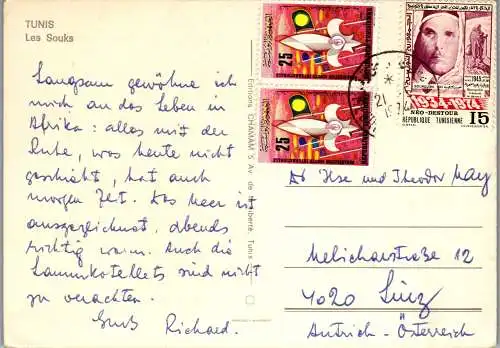 TUNIS
Les Souks
Langsam gewöhne ich
mich an das Leben in
Afrika: alles mit der
Ruhe, was heute nicht
geschieht, hat auch
morgen Zeit. Das Meer ist
ausgezeichnet, abends
richtig warm. Auch die
Lammkotelletts sind nicht
zu verachten.
Gruß Richard.
Editions CHAMAM 5 Av. de la Liberté. Tunis
25
25
1934-1974
NEO-DESTOUR
RÉPUBLIQUE TUNISIENNE 15
Ilse und Theodor May
Melicharstraße 12
4020 Linz
Autrich - Österreich